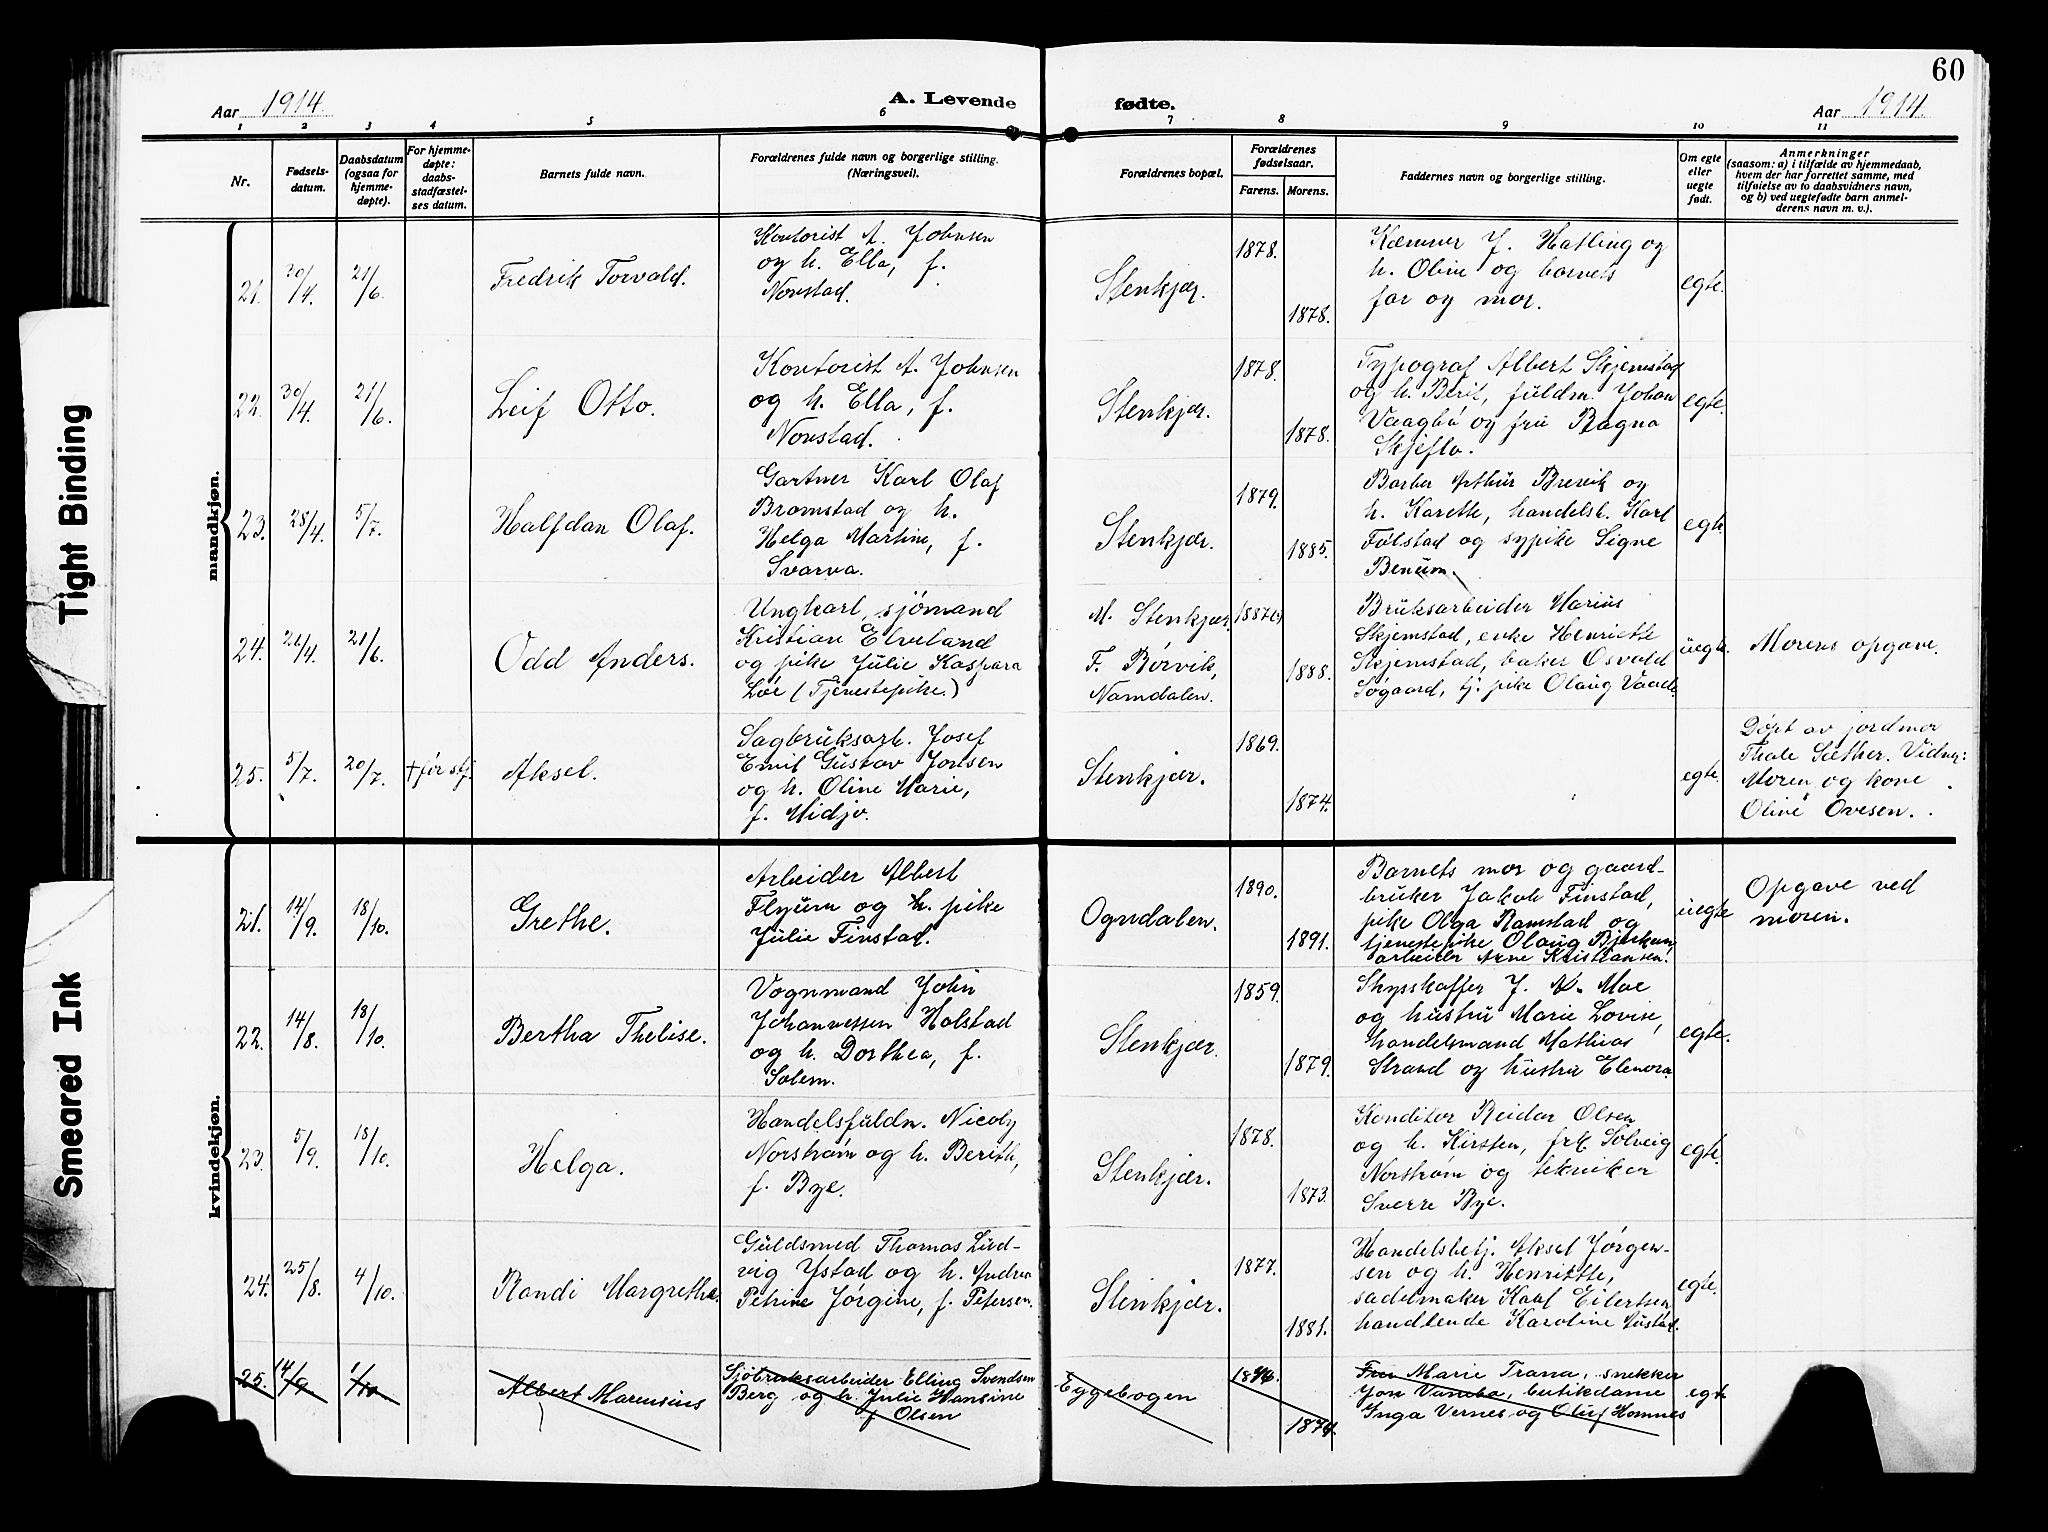 60
Aar 1914.
A. Levende
fødte.
Aar 1914.
1 2 3 4 5 6 7 8 9 10 11
Nr.
Fødsels-
datum.
Daabsdatum
(ogsaa for
hjemme-
døpte).
For hjemme-
døpte:
daabs-
stadfæstel-
ses datum.
Barnets fulde navn.
Forældrenes fulde navn og borgerlige stilling.
(Næringsvei).
Forældrenes bopæl.
Forældrenes
fødselsaar.
Farens. Morens.
Faddernes navn og borgerlige stilling.
Om egte
eller
uegte
født.
Anmerkninger
(saasom: a) i tilfælde av hjemmedaab,
hvem der har forrettet samme, med
tilføielse av to daabsvidners navn,
og b) ved uegtefødte barn anmel-
derens navn m. v.).
mandkjøn.
21. 21/6. Fredrik Torvald.
Kontorist A. Johnsen
og h. Ella, f.
Norstad.
Stenkjær.
1878.
1878.
Kæmner J. Hatling og
h. Oline og barnets
far og mor.
egte.
22. 30/4. 21/6. Leif Otto.
Kontorist A. Johnsen
og h. Ella, f.
Norstad.
Stenkjær.
1878.
1878.
Typograf Albert Skjemstad
og h. Berit, fuldm. Johan
Vaagbø og fru Ragna
Skjeflo.
egte.
23. 28/4. 5/7. Halfdan Olaf.
Gartner Karl Olaf
Bromstad og h.
Helga Martine, f.
Svarva.
Stenkjær.
1879.
1885.
Barber Arthur Brevik og
h. Karethe, handelsb. Karl
Følstad og sypike Signe
Benum.
egte.
24. 21/6. Odd Anders.
Ungkarl, sjømand
Kristian Elveland
og pike Julie Kaspara
Løe (Tjenestepike.)
M. Stenkjær
F. Børvik,
Namdalen.
1888.
Bruksarbeider Marius
Skjemstad, enke Henriette
Skjemstad, baker Osvald
Søgaard, tj. pike Olaug
uegte.
Morens opgave.
25. 5/7. 20/7. Aksel.
Sagbruksarb. Josef
Emil Gustav Jonsen
og h. Oline Marie,
f. Midjo.
Stenkjær.
1869.
1874.
egte.
Døpt av jordmor
Thale Sæther. Vidner:
Moren og kone
Oline Ovesen.
kvindekjøn.
21. 14/9. 18/10. Grethe.
Arbeider Albert
Flyum og h. pike
Julie Finstad.
Ogndalen.
1890.
1891.
Barnets mor og gaard-
bruker Jakob Finstad,
pike Olga Ramstad og
tjenestepike Olaug
arbeider Arne Kristiansen.
uegte
Opgave ved
moren.
22. 14/8. 18/10. Bertha Thelise.
Vognmand John
Johannessen Holstad
og h. Dorthea, f.
Solem.
Stenkjær.
1859.
1879.
Skysskaffer J. A. Moe
og hustru Marie Lovise,
handelsmand Mathias
Strand og hustru Elenora.
egte.
23. 5/9. 18/10. Helga.
Handelsfuldm. Nicoly
Norstrøm og h. Berith,
f. Bye.
Stenkjær.
1878.
1873.
Konditor Reidar Olsen
og h. Kirsten, frk. Solveig
Norstrøm og tekniker
Sverre Bye.
egte.
24. 25/8. 4/10. Randi Margrethe.
Guldsmed Thomas Lud-
vig Ystad og h. Andrea
Petrine Jørgine, f. Petersen.
Stenkjær.
1877.
1881.
Handelsbetj. Aksel Jørgen-
sen og h. Henriette,
sadelmaker Kaal Eilertsen
handlende Karoline Austad.
egte.
25. 14/9 1/10 Albert Marensius
Sjøbruksarbeider Elling Svendsen
Berg og h. Julie Hansine
f. Olsen
Eggebogen
1874.
Fru Marie Trana, snekker
Jon butikdame
Inga Vernes og Oluf Homnes
egte
Tight Binding
Smeared Ink